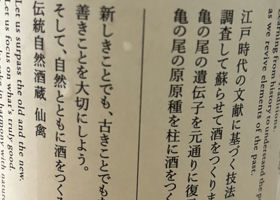 as we revive elements of the past
江戸時代の文献に基づく技法
調査して蘇らせて酒をつくりま
亀の尾の遺伝子を元通りに復
亀の尾の原原種を柱に酒をつく
新しきことでも、古きことでも
善きことを大切にしよう。
そして、自然とともに酒をつくる
伝統自然酒蔵 仙禽
Let us surpass the old and the new.
Let us focus on what's truly good.
in harmony with nature